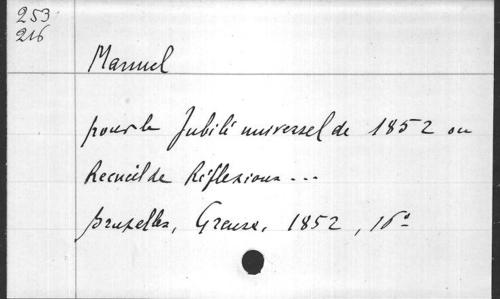 253
216
Manuel
pour le Jubilé universel de 1852 ou
Recueil de Réflexions ...
Bruxelles, Greuse, 1852, 16º